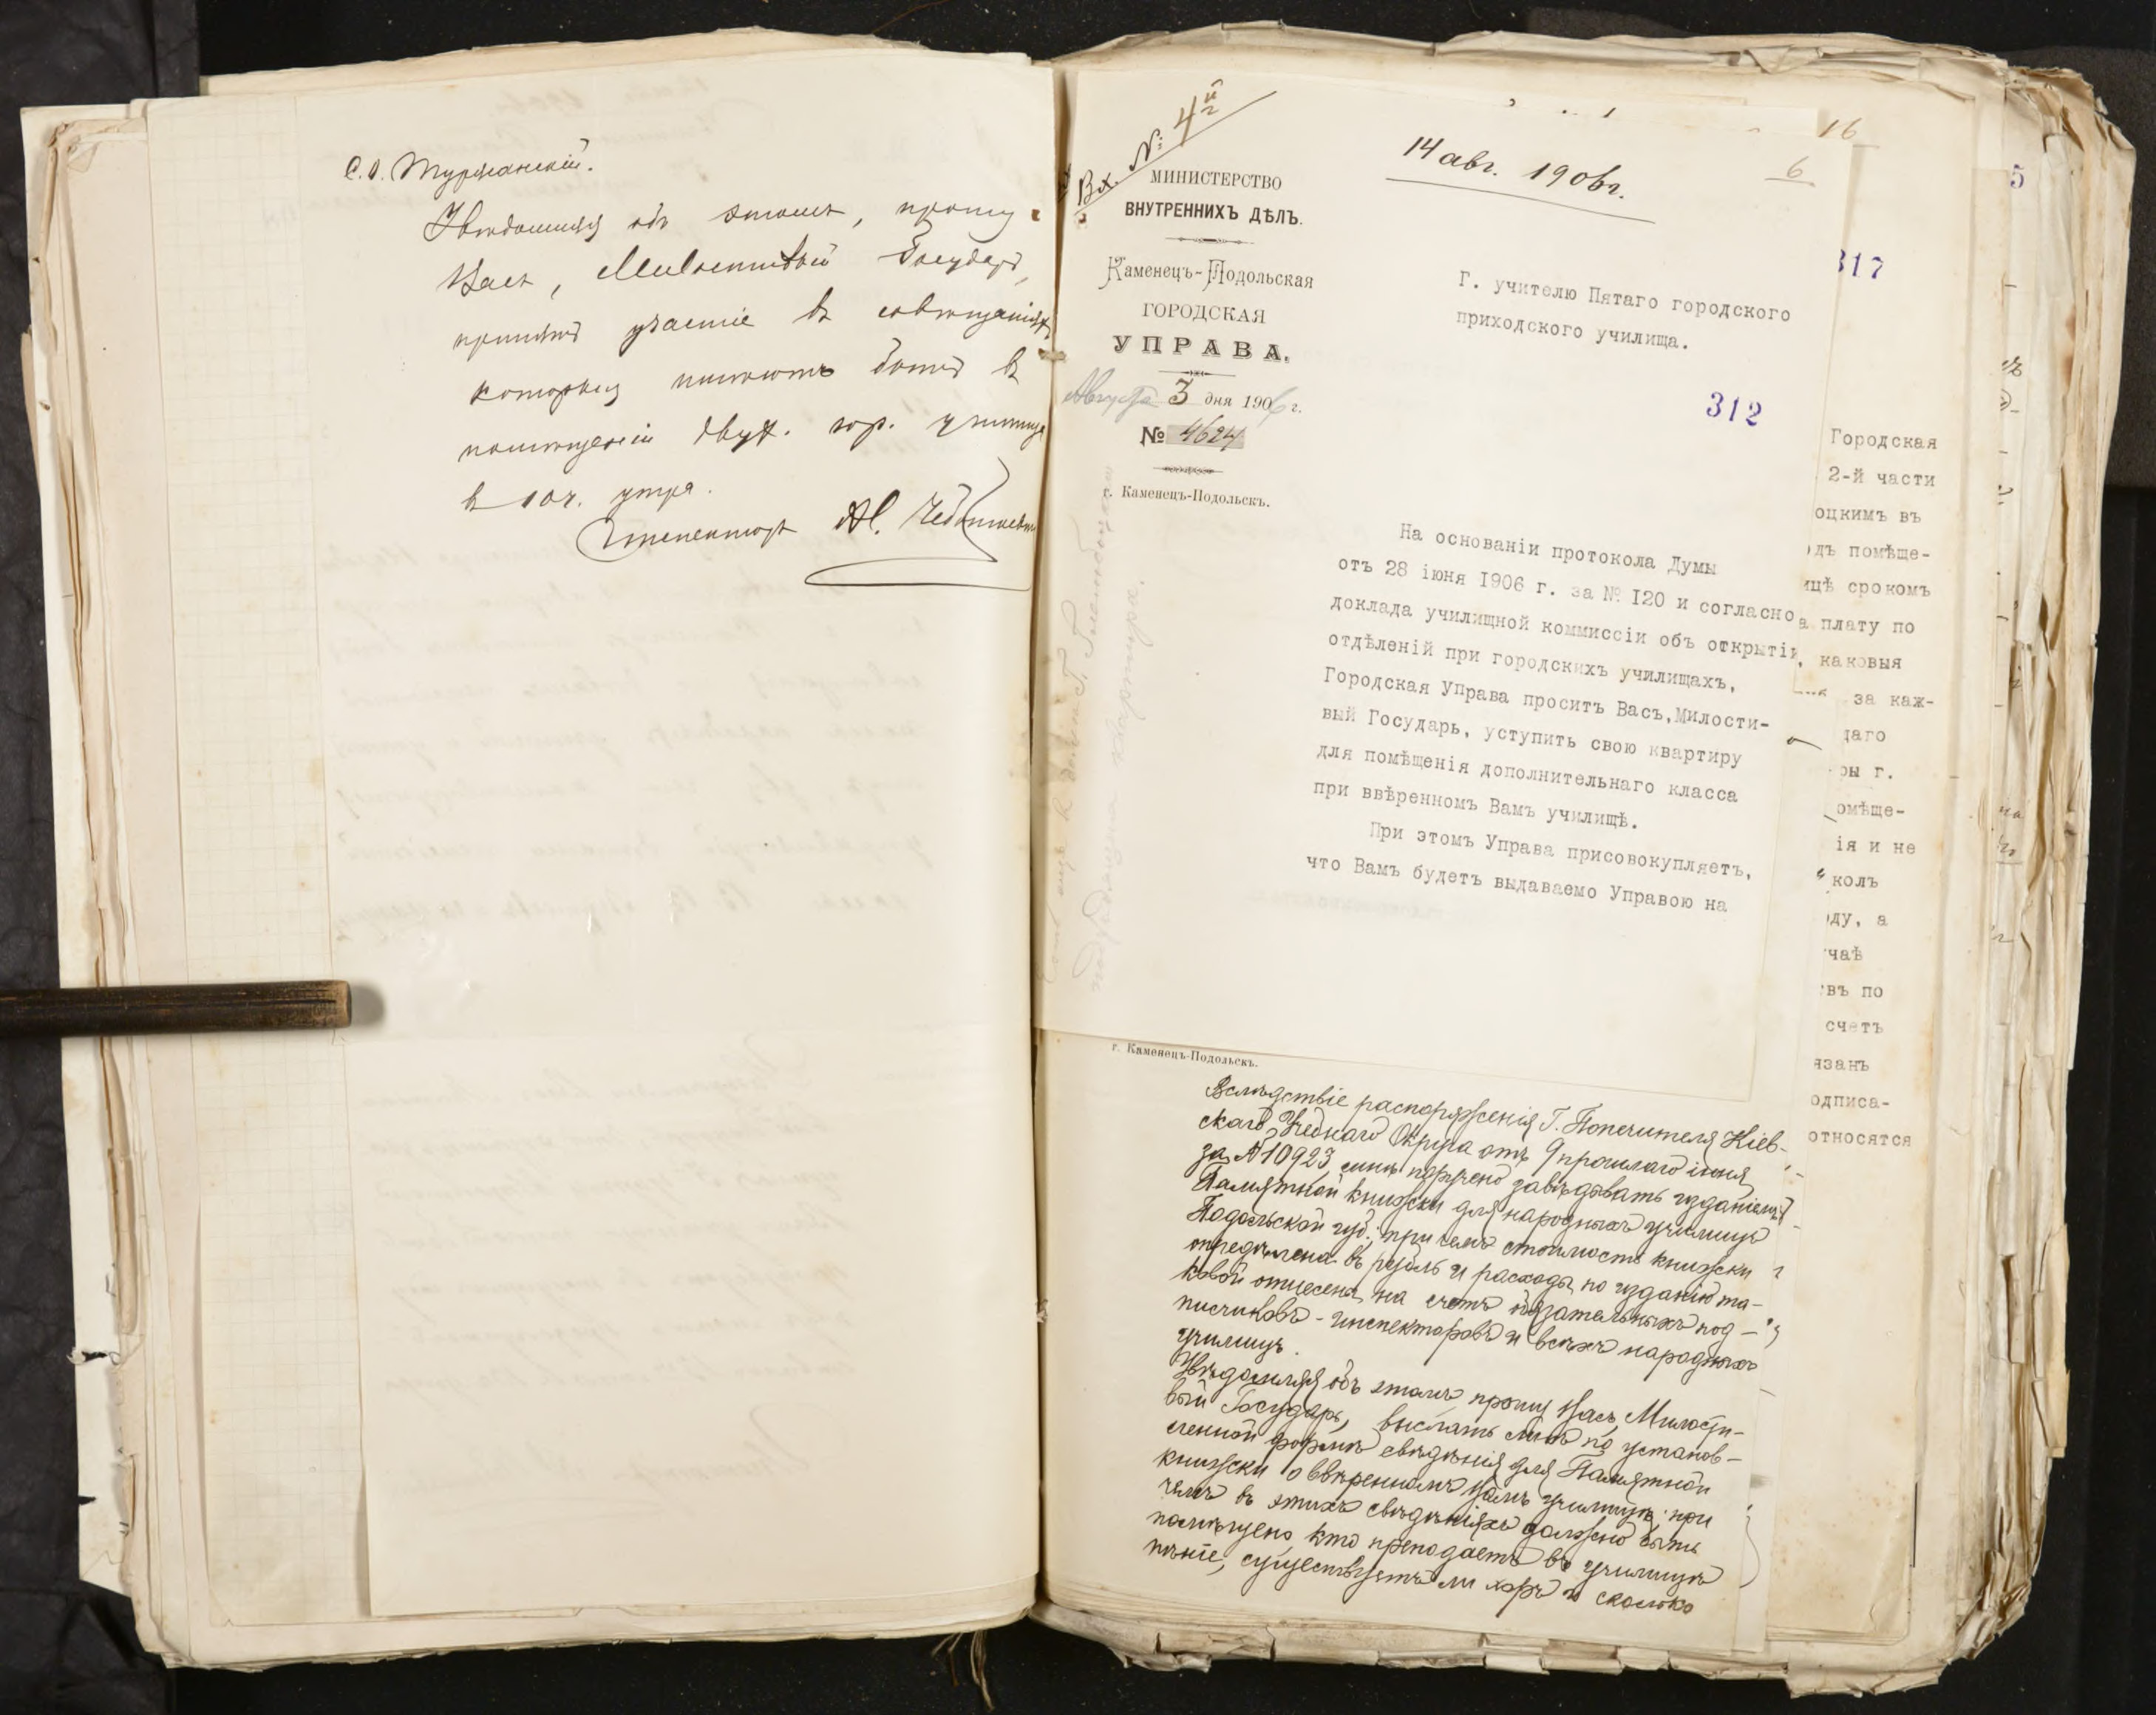 С. О. Туржанскій.
Увѣдомляя объ этомъ, прошу
Васъ, Милостивый Государь,
принять участіе въ совѣщаніяхъ,
которыя имѣютъ быть въ
помѣщеніи двухъ. гор. училища
въ 10 ч. утра.
Инспекторъ
Вх. № 4
14 авг. 1906 г.
16
6
МИНИСТЕРСТВО
ВНУТРЕННИХЪ ДѢЛЪ.
Каменецъ-Подольская
ГОРОДСКАЯ
УПРАВА.
Августа 3 дня 1906 г.
№ 4624
г. Каменецъ-Подольскъ.
Г. учителю Пятаго городского
приходского училища.
312
На основаніи протокола Думы
отъ 28 іюня I906 г. за № I20 и согласно
доклада училищной коммиссіи объ открытіи
отдѣленій при городскихъ училищахъ,
Городская Управа проситъ Васъ,Милости-
вый Государь, уступить свою квартиру
для помѣщенія дополнительнаго класса
при ввѣренномъ Вамъ училищѣ.
При этомъ Управа присовокупляетъ,
что Вамъ будетъ выдаваемо Управою на
квартира.
г. Каменецъ-Подольскъ.
Вслѣдствіе распоряженія Г. Попечителя Кіев-
скаго Учебнаго Округа отъ 9 прошлаго іюня
за № 10923 мнѣ поручено завѣдывать изданіемъ
Памятной книжки для народныхъ училищъ
Подольской губ.; при чемъ стоимость книжки
опредѣлена въ рубль и расходы по изданію та-
ковой отнесены на счетъ обязательныхъ под-
писчиковъ - инспекторовъ и всѣхъ народныхъ
училищъ.
Увѣдомляя объ этомъ, прошу Васъ, Милости-
вый Государь, выслать мнѣ по установ-
ленной формѣ свѣдѣнія для Памятной
книжки о ввѣренномъ Вамъ училищѣ; при
чемъ въ этихъ свѣдѣніяхъ должно быть
помѣщено, кто преподаетъ въ училищѣ
пѣніе, существуетъ ли хоръ и сколько
317
Городская
2-й части
оцкимъ въ
дъ помѣще-
ицѣ срокомъ
а плату по
, каковыя
за каж-
даго
ры г.
омѣще-
ія и не
колъ
ду, а
чаѣ
въ по
счетъ
язанъ
одписа-
относятся
5